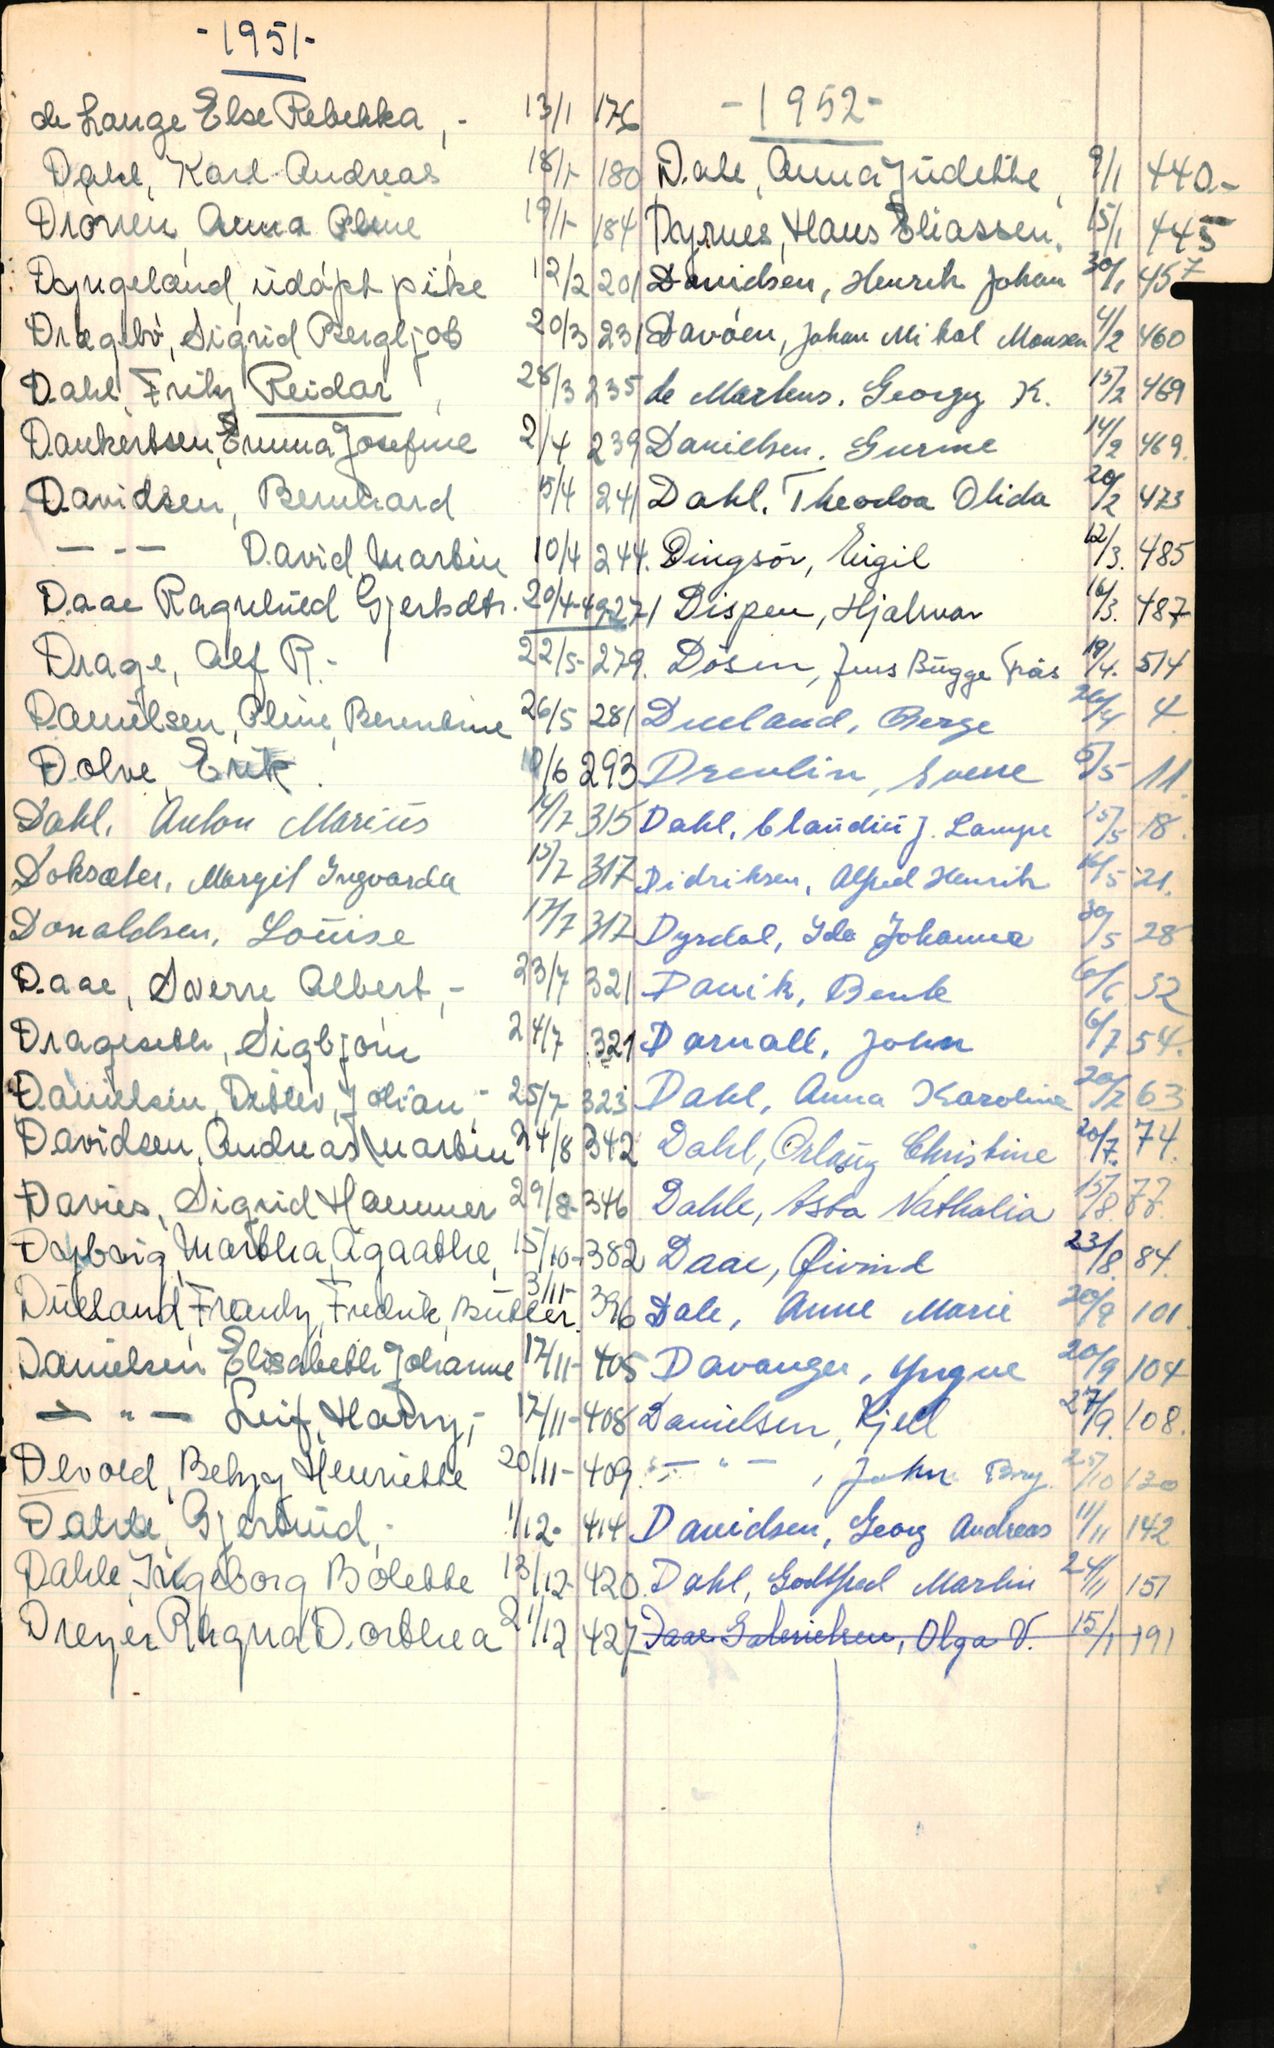 -1951-
de Lange Else Rebekka, - 13/1 176
Dahl, Karl Andreas 18/1- 180
Drönen, Anna Oline 19/1- 184
Dyngeland, udöpt pike 12/2 201
Dragebö, Sigrid Bergljot 20/3 231
Dahl, Fritz Reidar, 28/3 235
Dankertsen, Emma Josefine 2/4 239
Davidsen, Bernhard 5/4 241
— - — David Martin 10/4 244.
Daae Ragnhild Gjertsdtr. 20/4-49 271
Drage, Alf R. - 22/5- 279.
Danielsen, Oline, Berentine 26/5 281
Dolve, Erik. 10/6 293
Dahl, Anton Marius 14/7 315
Doksæter, Margit Ingvarda 15/7 317
Donaldsen, Louise 17/7 317
Daae, Sverre Albert, - 23/7 321
Drageseth, Sigbjörn 24/7 321
Danielsen, Detlev, Johan - 25/7 323
Davidsen, Andreas Martin 24/8 342
Davies, Sigrid Hammer 29/8- 346
Dyborg, Martha, Agaathe, 15/10- 382
Dueland, Frantz, Fredrik, Butler. 3/11- 396
Danielsen Elisabeth Johanne 17/11- 405
— " — Leif, Harry, - 17/11- 408
Devold, Betzy Henriette 20/11- 409.
Gjertrud, - 1/12- 414
Dahle, Ingeborg Bolette 13/12- 420
Dreyer Ragna Dorthea 21/12 427
-1952-
Dale, Anna Judethe, 9/1 440.-
Dyrnes, Hans Eliassen, 15/1 445
Davidsen, Henrik Johan 30/1 457
Davöen, Johan Mikal Monsen 4/2 460
de Martens, Georgy K. 15/2 469
Danielsen, Gurine 14/2 469.
Dahl, Theodoa Olida 20/2 473
Dingsör, Eigil 12/3. 485
Dispen, Hjalmar 16/3. 487
Dösen, Jens Bugge 19/4. 514
Dueland, Berge 26/4 4.
Drevlin, Svene 5/5 11.
Dahl, Claudin J. Lampe 15/5 18.
Didriksen, Alfred Henrik 16/5 21.
Dyrdal, Ida Johanna 30/5 28
Danik, Bente 6/6 32
Darnall, John 6/7 54.
Dahl, Anna Karoline 20/7 63
Dahl, Orlaug Christine 20/7. 74.
Dahle, Asta Nathalia 15/8. 77.
Daae, Øivind 23/8. 84.
Dale, Anne Marie 20/9 101.
Davanger, Yngve 20/9 104
Danielsen, Kjell 27/9. 108.
— " —, John Bry. 25/10 130
Davidsen, Georg Andreas 11/11 142
Dahl, Godtfred Martin 24/11 151
Daae Gabrielsen, Olga V. 15/1 191